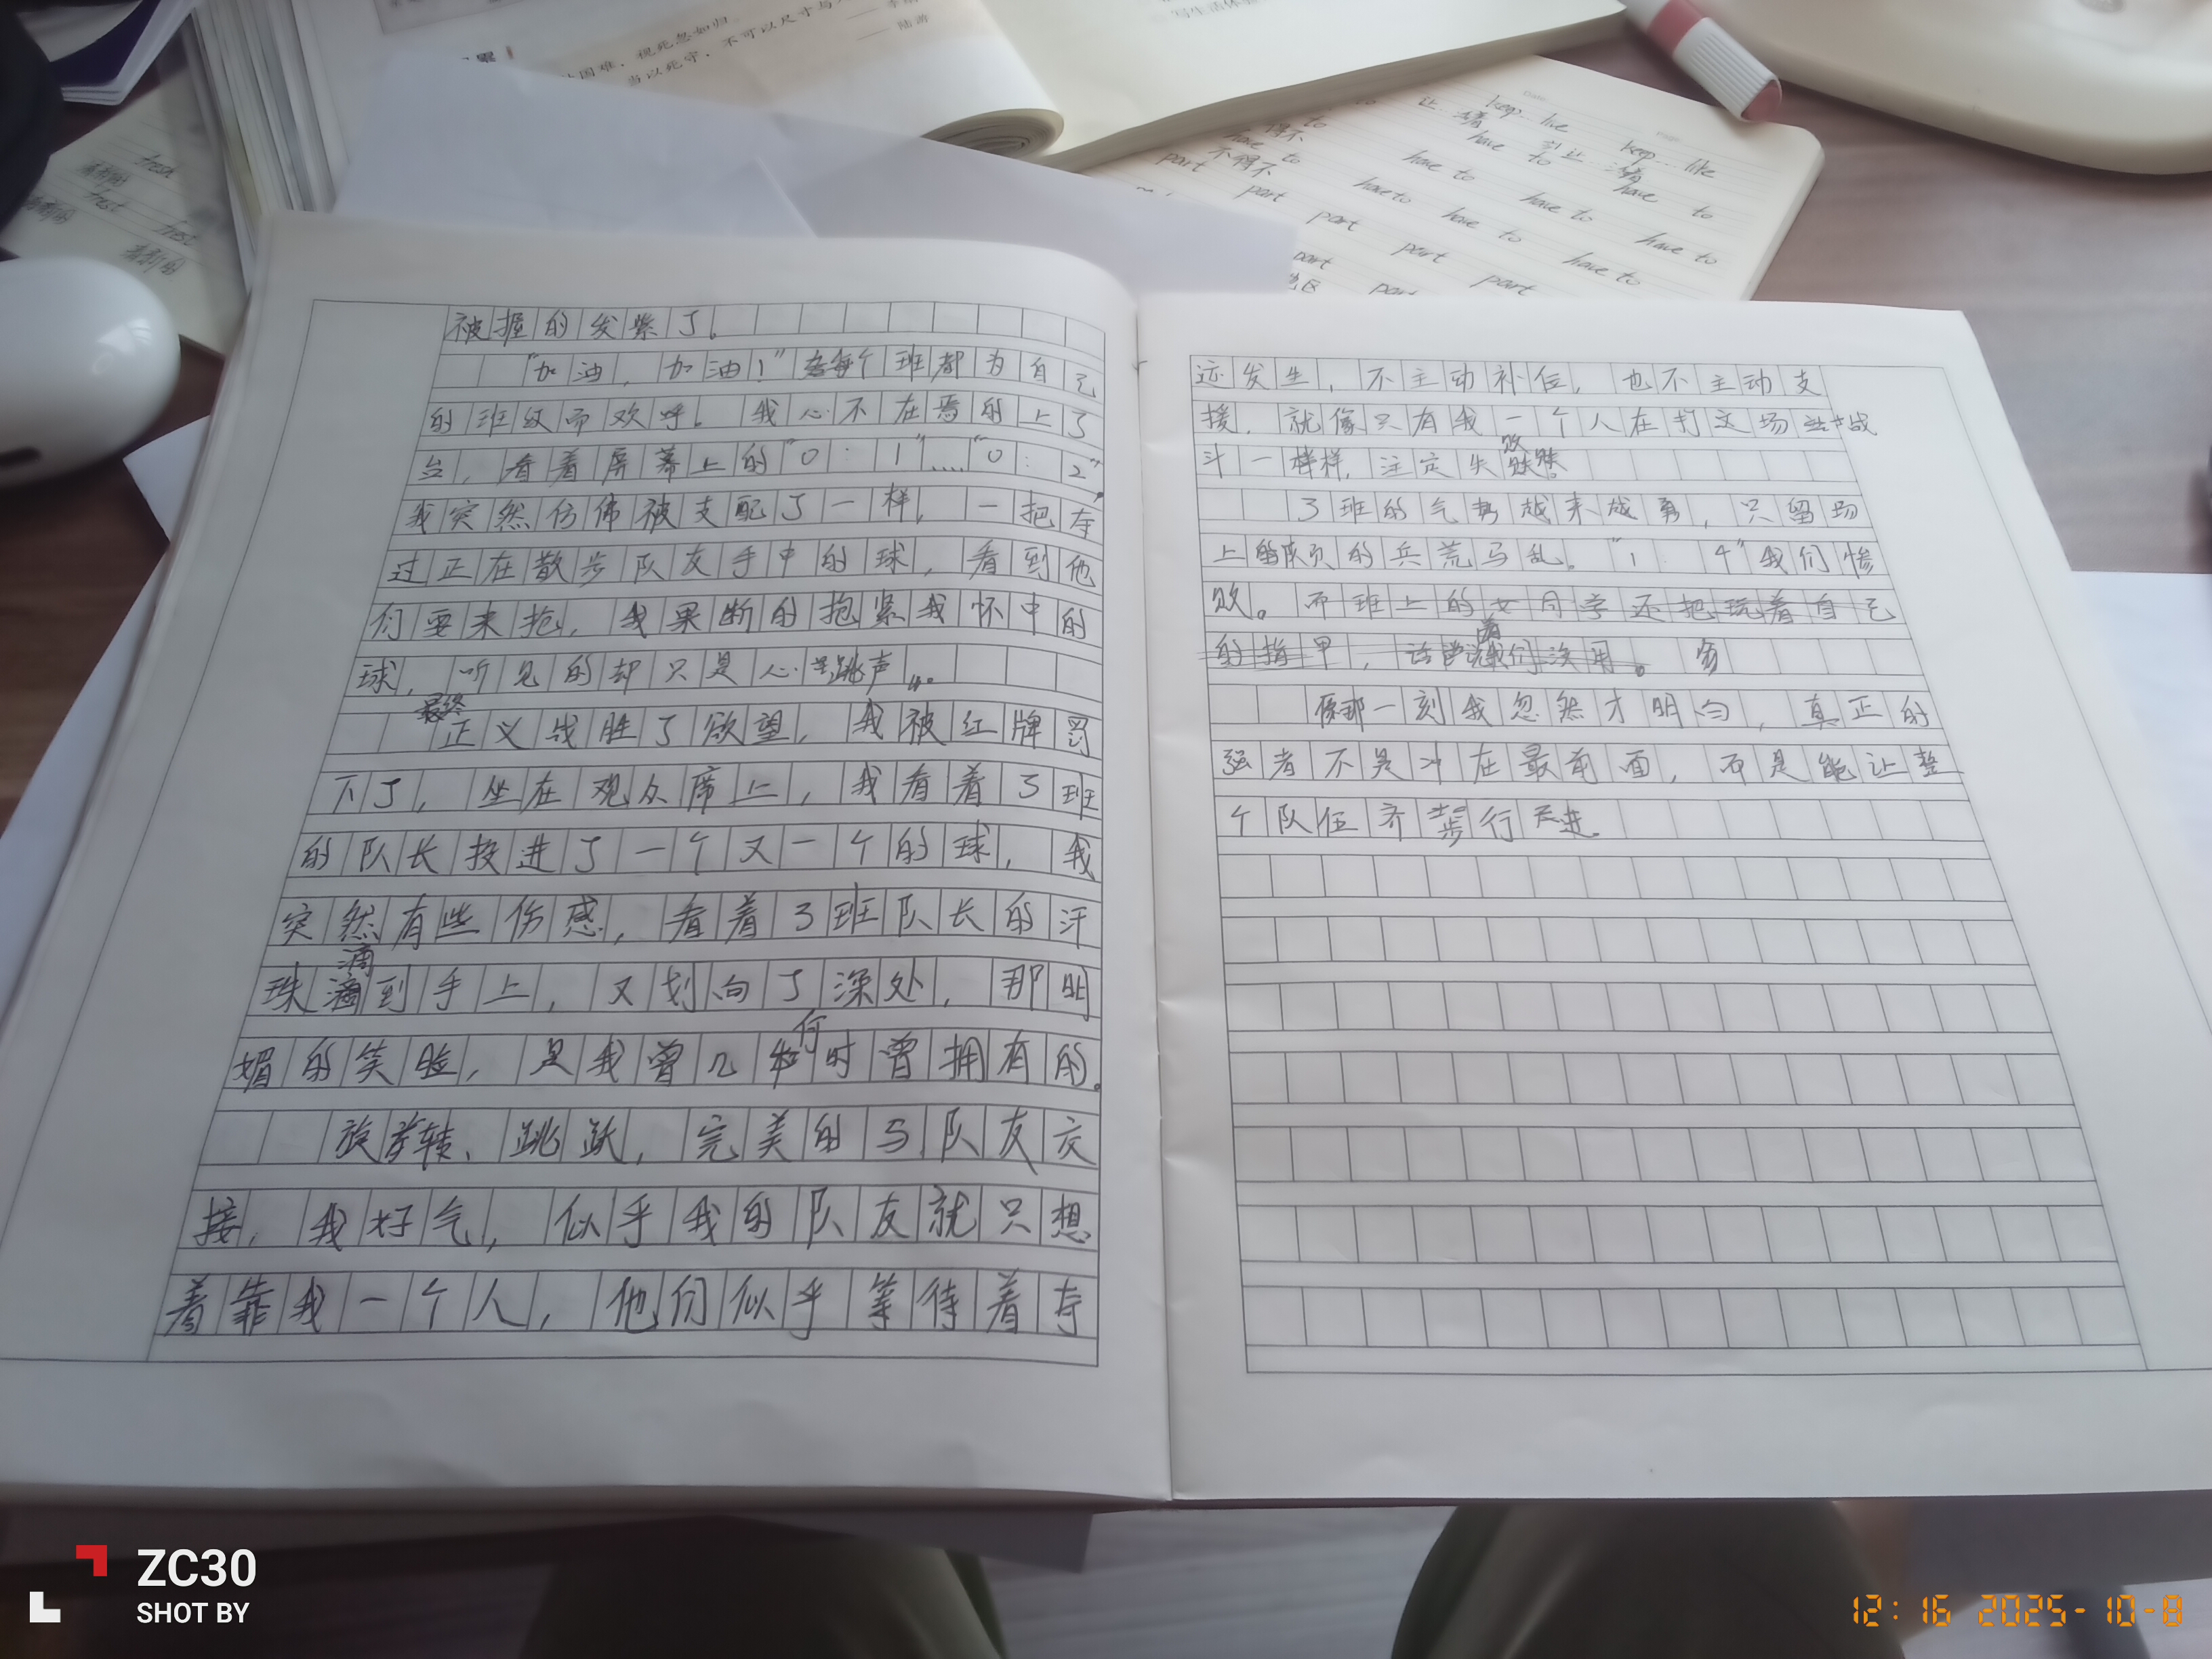 视死忽如归。
国难，
不可以尺寸与
当以死守，
—— 陆游
写生活体验
fresh
新的
fresh
keep... like
keep... like
have to
不得不
have to
have to
have to
have to
have to
have to
have to
have to
part
part
part
part
part
part
part
被握的发紫了。
“加油，加油！”每个班都为自己
的班级而欢呼。我心不在焉的上了
台，看着屏幕上的“0：1”....“0：2”，
我突然仿佛被支配了一样，一把夺
过正在散步队友手中的球，看到他
们要来抢，我果断的抱紧我怀中的
球，听见的却只是心跳声...。
最终
正义战胜了欲望，我被红牌罚
下了，坐在观众席上，我看着3班
的队长投进了一个又一个的球，我
突然有些伤感，看着3班队长的汗
滴
珠滴到手上，又划向了深处，那明
何
媚的笑脸，是我曾几时曾拥有的。
旋转、跳跃，完美的与队友交
接，我好气，似乎我的队友就只想
着靠我一个人，他们似乎等待着夺
迹发生，不主动补位，也不主动支
援，就像只有我一个人在打这场战
败
斗一样，注定失
3班的气势越来越勇，只留场
上的队员的兵荒马乱。“1：4”我们惨
败。而班上的女同学还把玩着自己
着
的指甲，话说我们没用。
那一刻我忽然才明白，真正的
强者不是冲在最前面，而是能让整
个队伍齐步行进。
ZC30
SHOT BY
12:16 2025-10-8